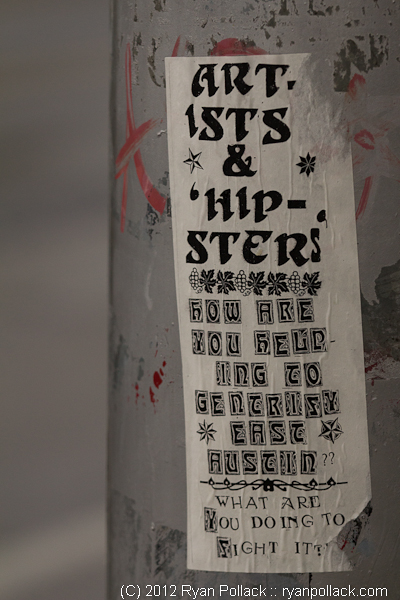 ART-
ISTS
&
'HIP-
STERS'
HOW ARE
YOU HELP-
ING TO
GENTRIFY
EAST
AUSTIN??
WHAT ARE
YOU DOING TO
FIGHT IT?
(C) 2012 Ryan Pollack :: ryanpollack.com